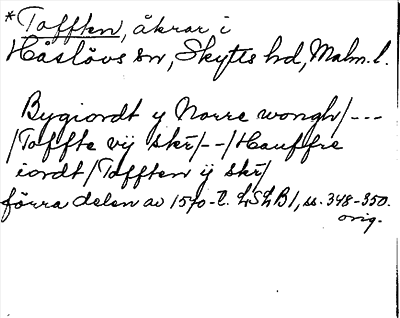 *Tofften, åkrar i
Håslövs sn, Skytts hd, Malm. l.
Bygiordt y Norre wongh/---
/Toffte vij skr/--/Hauffre
iordt/Tofften ij skr/
förra delen av 1570-t. LSLB 1, ss. 348-350.
orig.